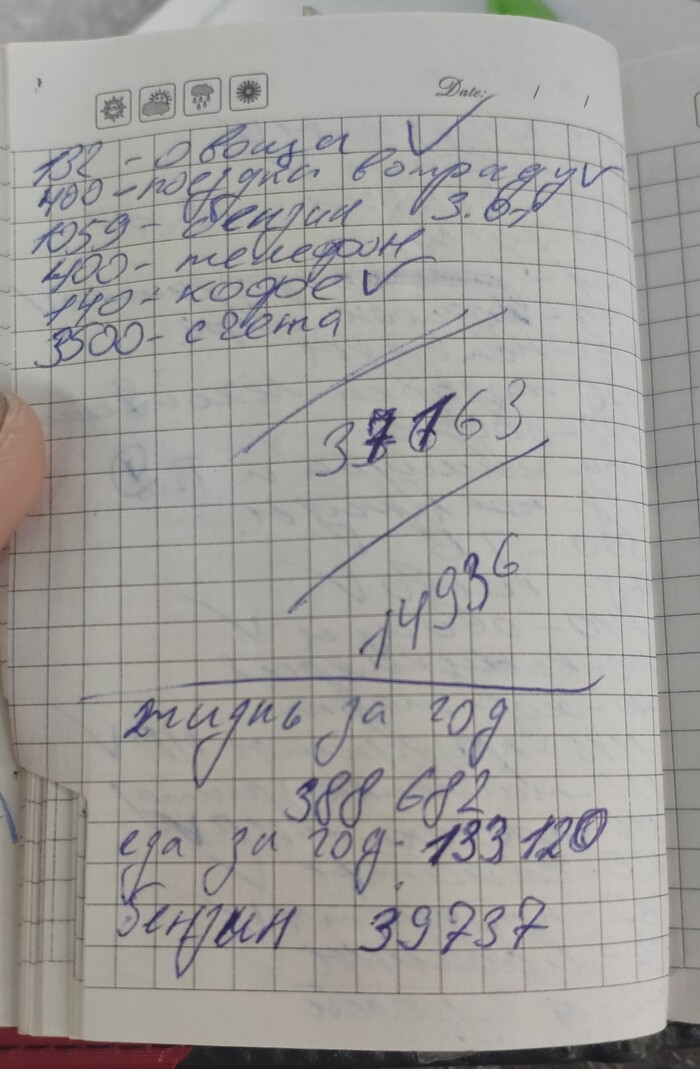 Date: / /
132 - овощи
400 - поездка в ограду
1059 - бензин 3.07
400 - телефон
140 - кофе
3500 - счета
37163
14936
жизнь за год
388 682
еда за год - 133 120
бензин 39737